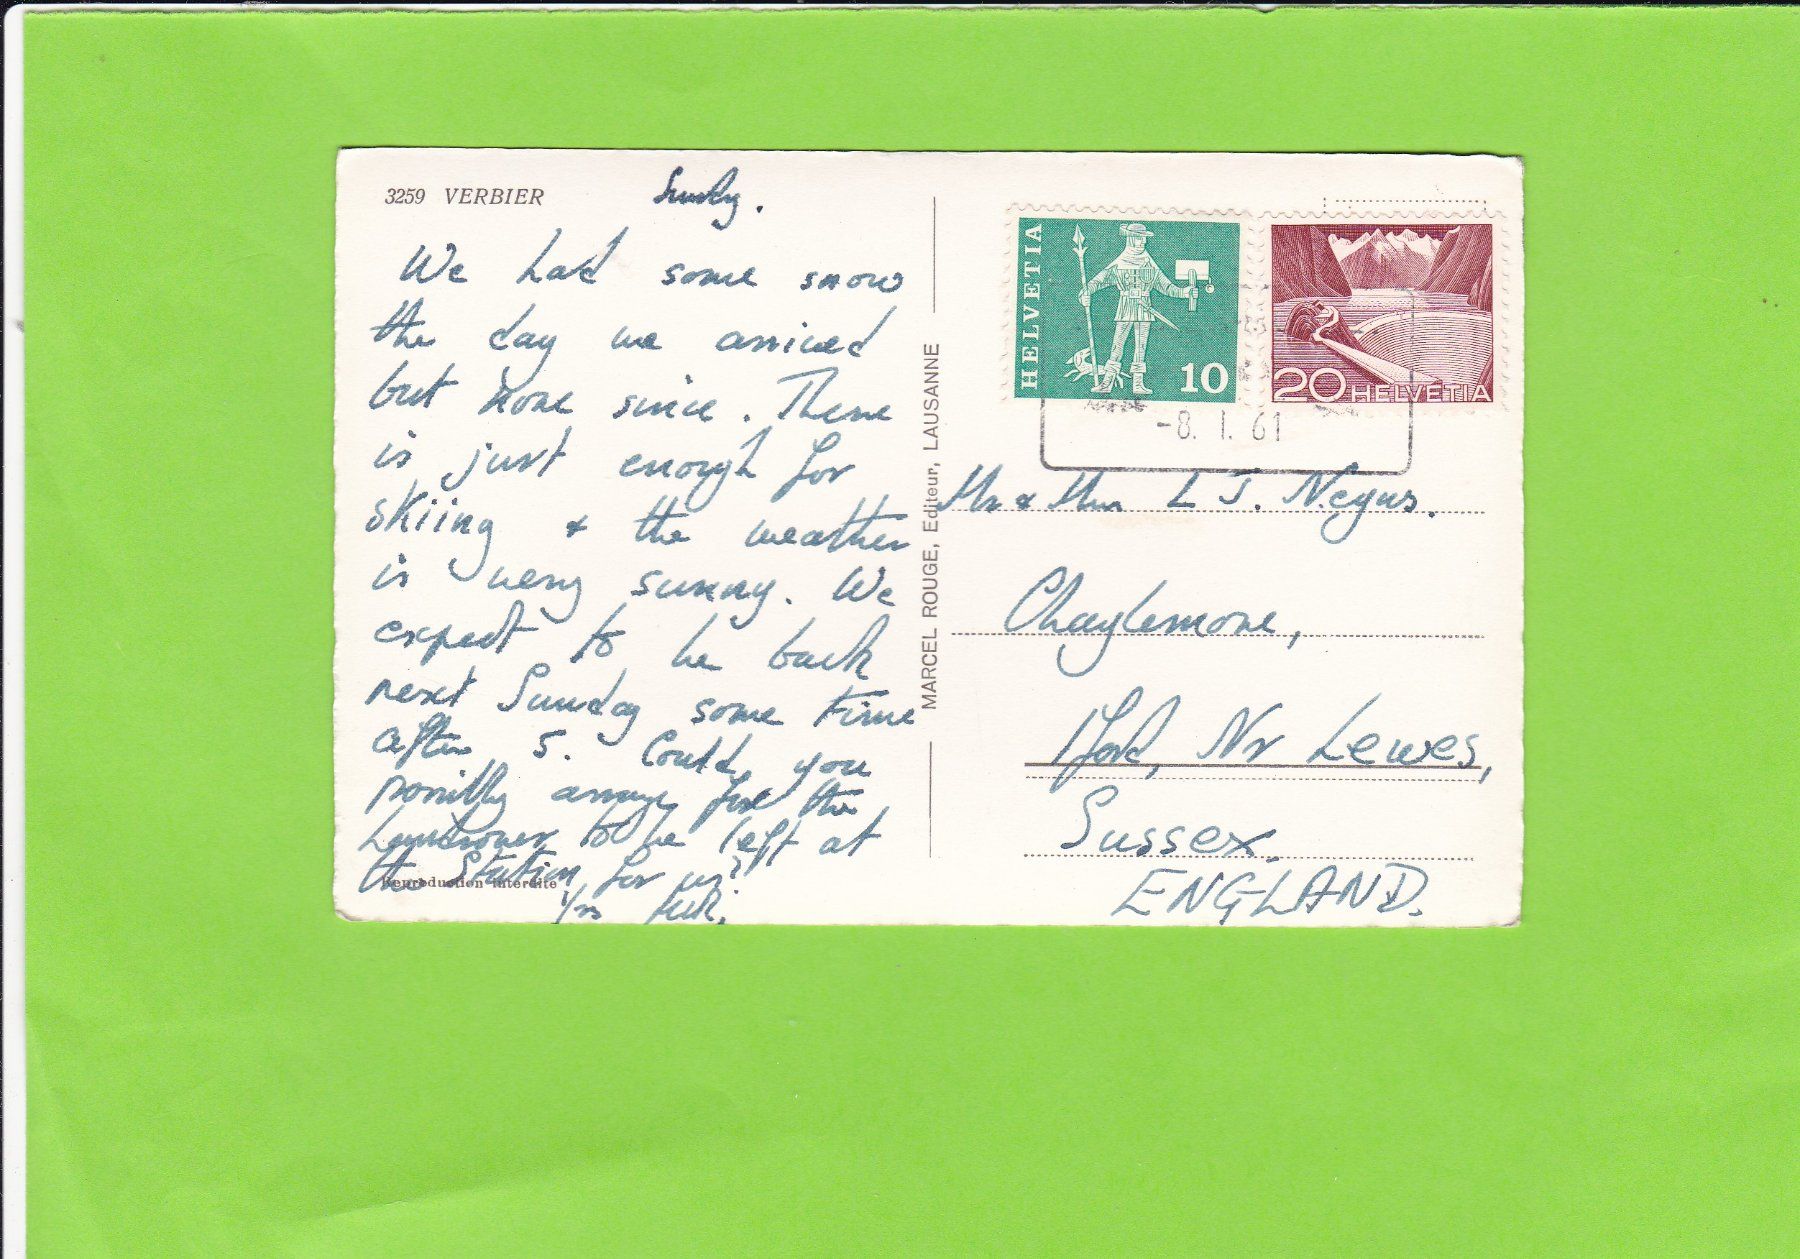 3259 VERBIER
Sunday.
We had some snow
the day we arrived
but none since. There
is just enough for
skiing & the weather
is very sunny. We
expect to be back
next Sunday some time
after 5. Could you
possibly arrange for the
Landrover to be left at
the Station for us?
Reproduction interdite
Yrs
MARCEL ROUGE, Editeur, LAUSANNE
HELVETIA
10
20 HELVETIA
-8. 1. 61
Mr & Mrs L J. Negus.
Iford, Nr Lewes,
Sussex.
ENGLAND.